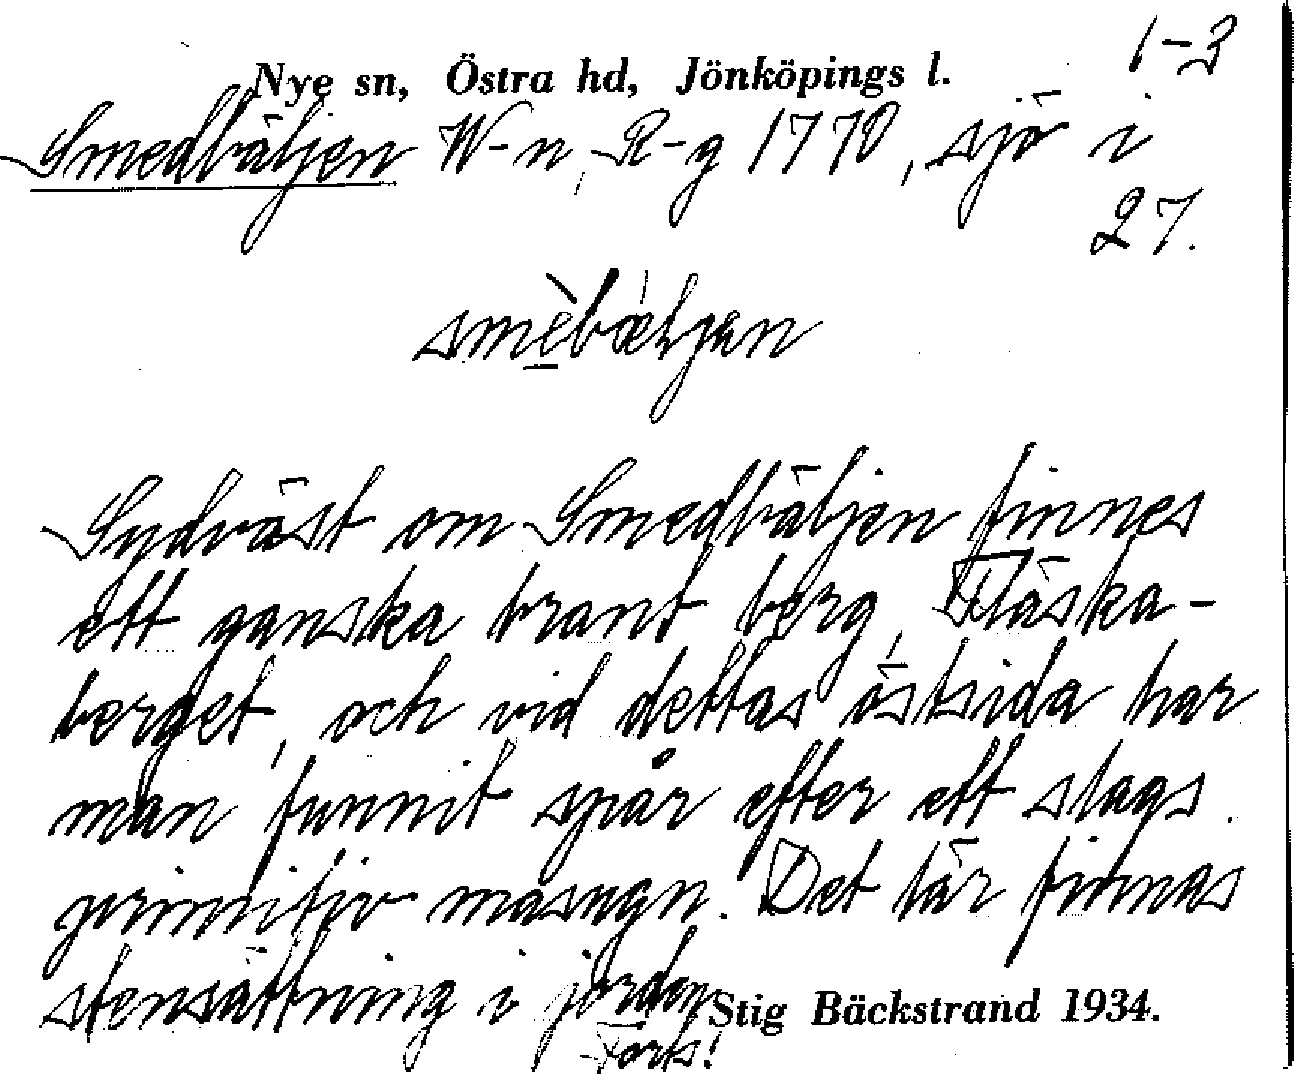 1-3
Nye sn, Östra hd, Jönköpings l.
Smedbäljen W-n, R-g 1770, sjö i
27.
smèbæljen
Sydväst om Smedbäljen finnes
ett ganska brant berg, Fläska-
berget, och vid dettas östsida har
man funnit spår efter ett slags
primitiv masugn. Det lär finnas
stensättning i jorden
Stig Bäckstrand 1934.
Forts!